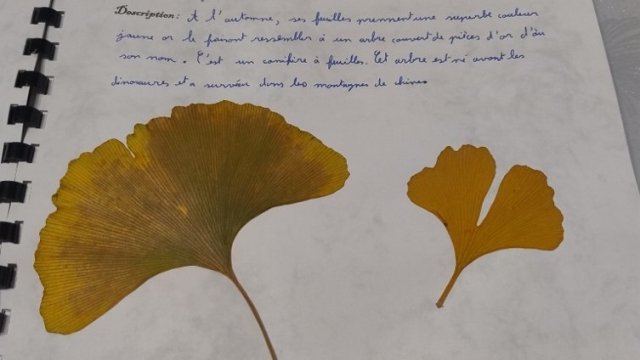 Description : A l'automne, ses feuilles prennent une superbe couleur
jaune or le faisant ressembler à un arbre couvert de pièces d'or d'où
son nom. C'est un conifère à feuilles. Cet arbre est né avant les
dinosaures et a survécu dans les montagnes de chine.